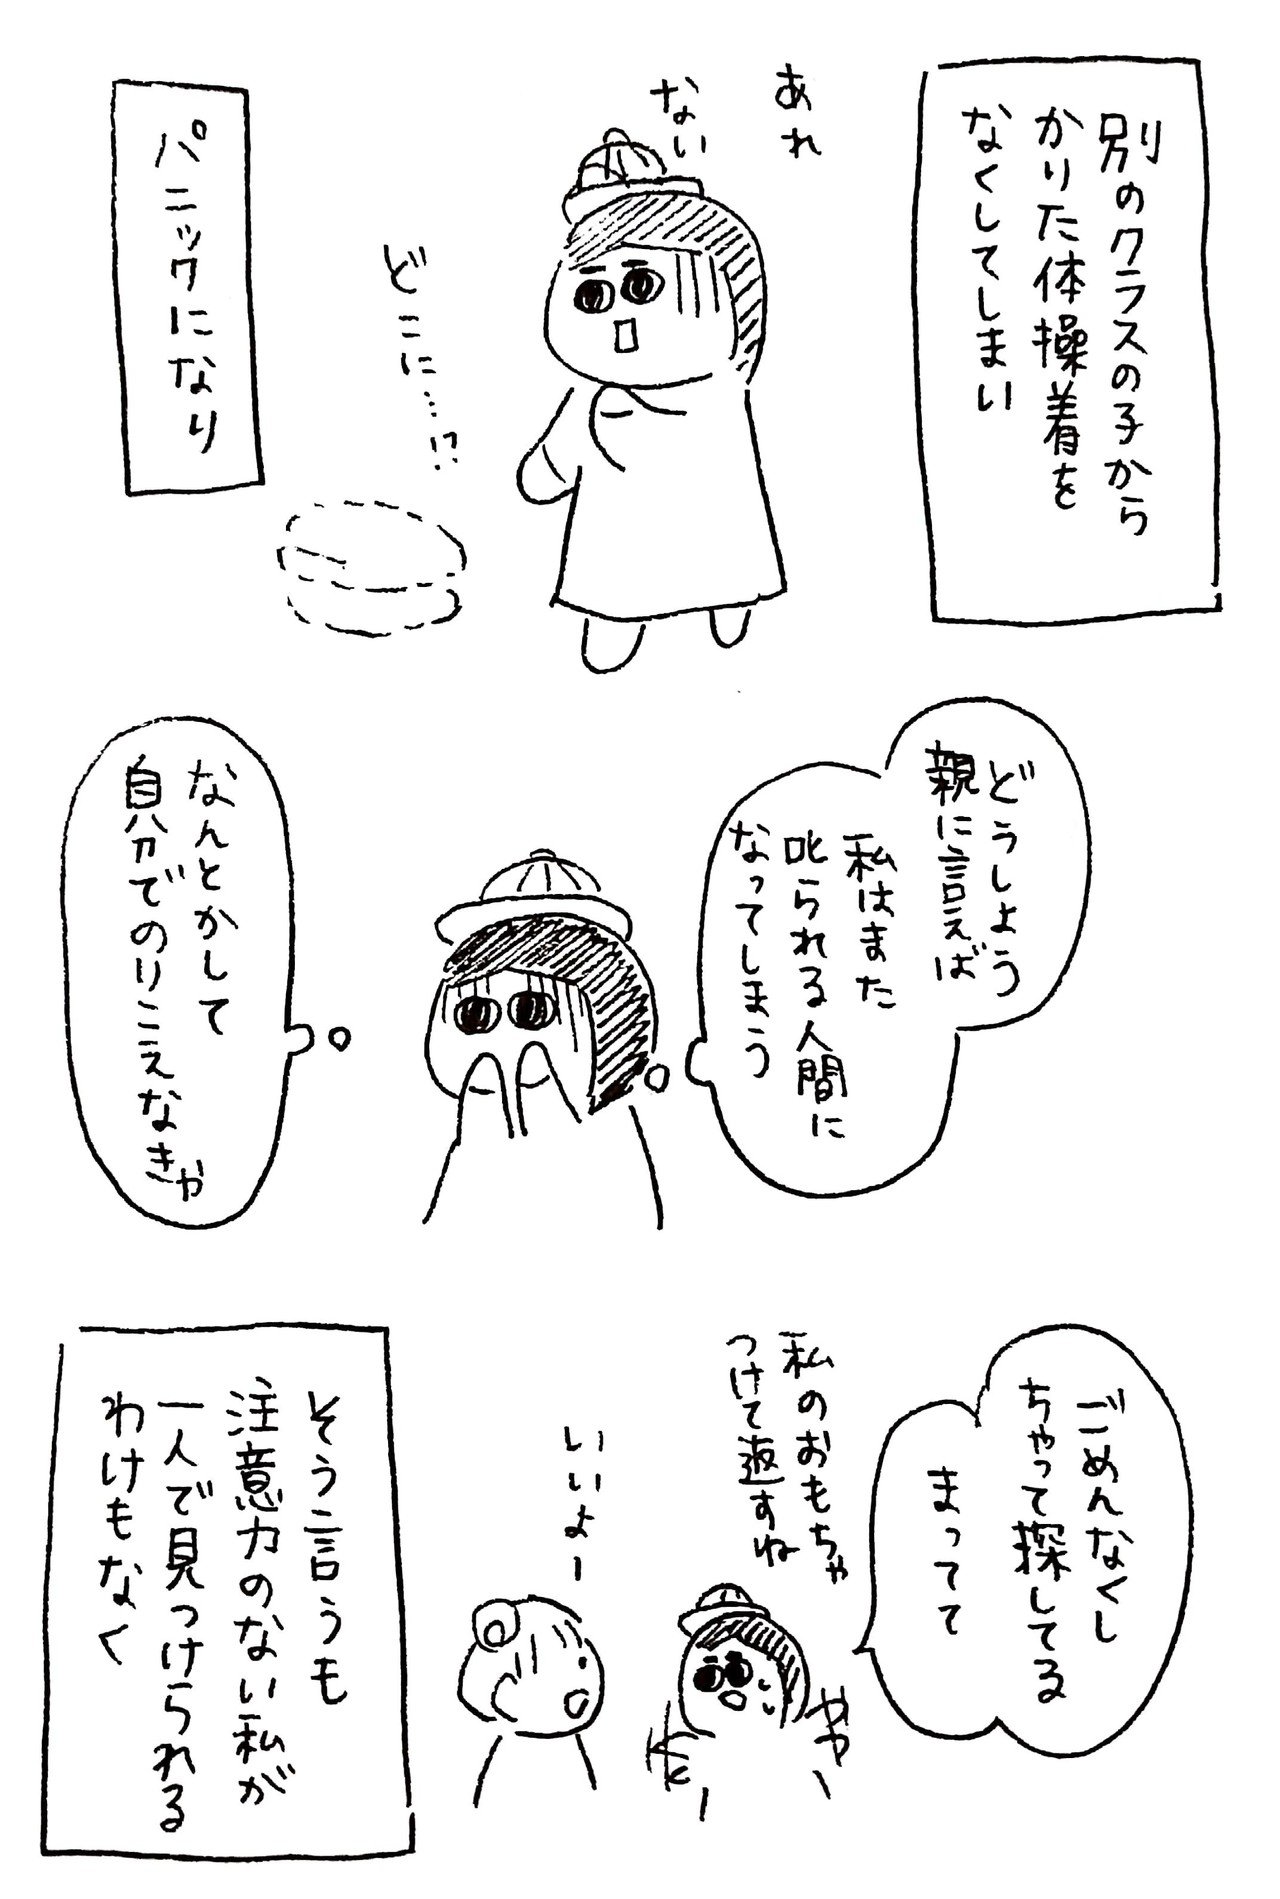 別のクラスの子から
かりた体操着を
なくしてしまい
あれ
ない
どこに…!?
パニックになり
どうしよう
親に言えば
私はまた
叱られる人間に
なってしまう
なんとかして
自分でのりこえなきゃ
ごめんなくし
ちゃって探してる
まってて
私のおもちゃ
つけて返すね
いいよー
そう言うも
注意力のない私が
一人で見つけられる
わけもなく